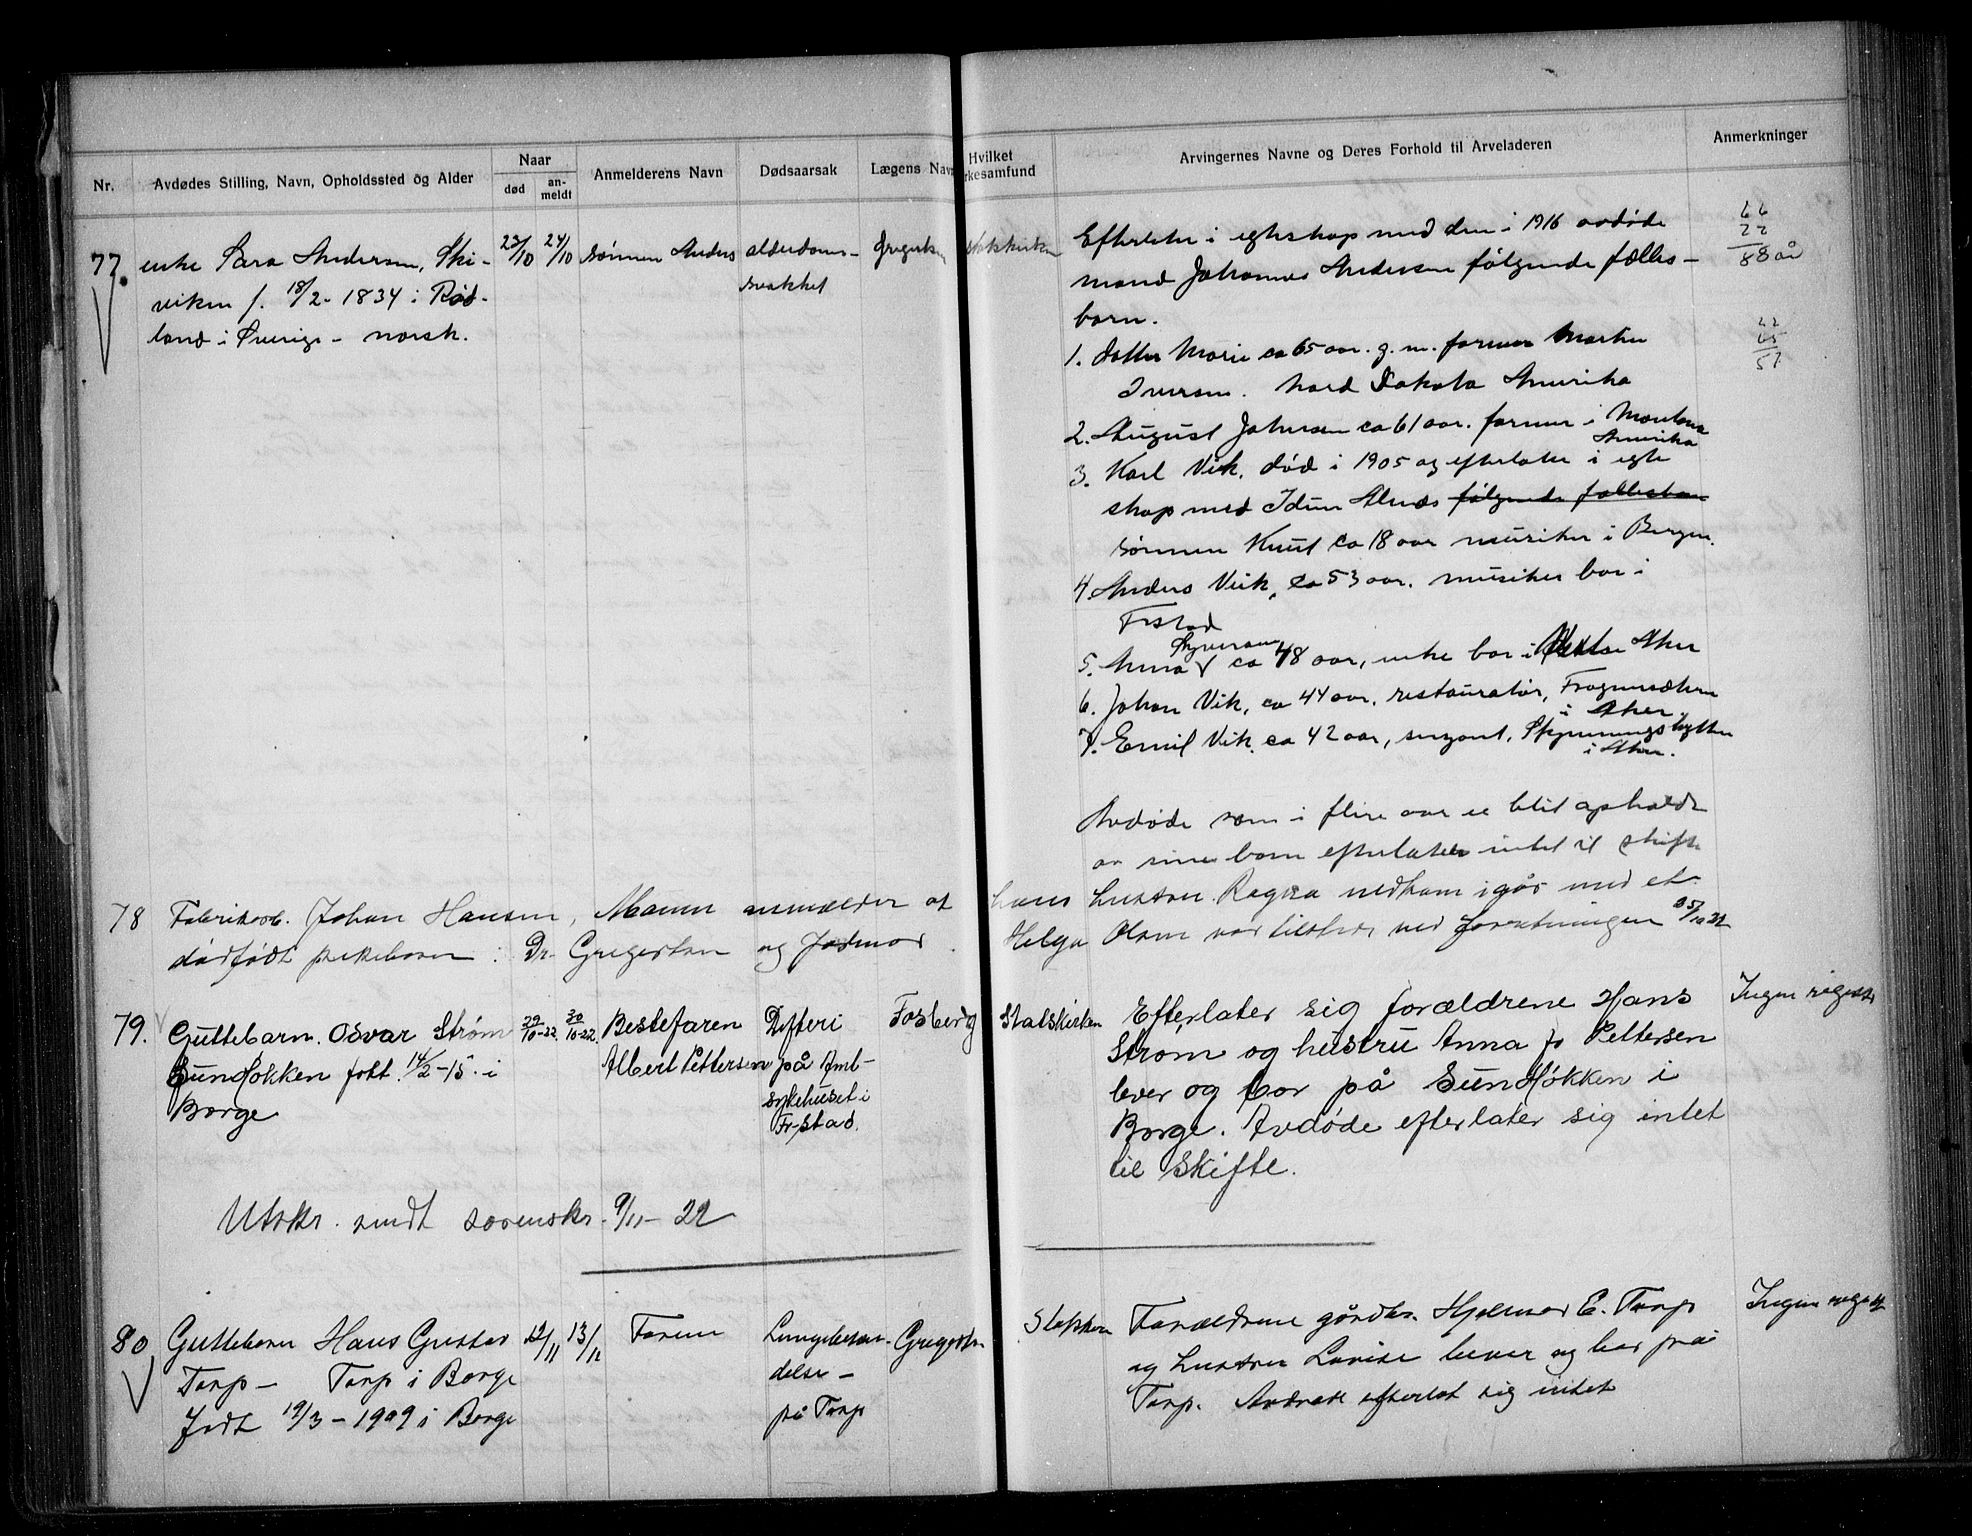 Nr.
Avdødes Stilling, Navn, Opholdssted og Alder
Naar
død
an-
meldt
Anmelderens Navn
Dødsaarsak
Lægens Navn
Hvilket
rkesamfund
Arvingernes Navne og Deres Forhold til Arveladeren
Anmerkninger
77.
enke Sara Andersen, Ski-
viken f. 18/2-1834 i Rød-
land i Sverige - norsk.
23/10
24/10
sønnen Anders
alderdoms-
svakhet
Gregertsen
statskirken
Efterlater i egteskap med den i 1916 avdøde
mand Johannes Andersen følgende fælles-
barn.
1. datter Marie ca 65 aar. g. m. farmer Martin
Iversen. Nord Dakota Amerika
2. August Johnsen ca 61 aar. farmer i Montana
Amerika
3. Karl Vik. død i 1905 og efterlater i egte
skap med Idun Alnæs følgende fællesbarn
sønnen Knut ca 18 aar musiker i Bergen.
4. Anders Viik, ca 53 aar. musiker bor i
Frstad
5. Anna Syversen ca 48 aar, enke bor i Vestre Aker
6. Johan Vik, ca 44 aar, restauratør, Frognersæteren
i Aker.
7. Emil Vik. ca 42 aar, sergeant, hytten
i Aker.
Avdøde som i flere aar er blit opholdt
av sine barn efterlater intet til skifte
66
22
88 år
22
65
57
78
Fabrikarb. Johan Hansen, Mannen anmelder at hans hustru Ragna nedkom igår med et
dødfødt pikebarn : Dr. Gregertsen og Jordmor Helga Olsen var tilstede ved forretningen 25/10 22
79.
Guttebarn. Osvar Strøm
Sundløkken født 14/2-15 i
Borge
29/10-22.
30/10-22.
Bestefaren
Albert Pettersen
Difteri
på Amt-
sykehuset i
Fr-stad.
Fosberg
Statskirken
Efterlater sig forældrene Hans
Strøm og hustru Anna f. Pettersen
lever og bor på Sundløkken i
Borge. Avdøde efterlater sig intet
til Skifte.
Ingen registr
Utskr. sendt sorenskr. 9/11-22
80
Guttebarn Hans Gustav
Torp - Torp i Borge
født 19/3-1909 i Borge
12/11
13/11
Faren
Lungebetæn-
delse -
på Torp
Gregertsen
Statskirken
Forældrene gårdbr. Hjalmar E. Torp
og hustru Lovise lever og bor på
Torp. Avdøde efterlot sig intet
Ingen registr